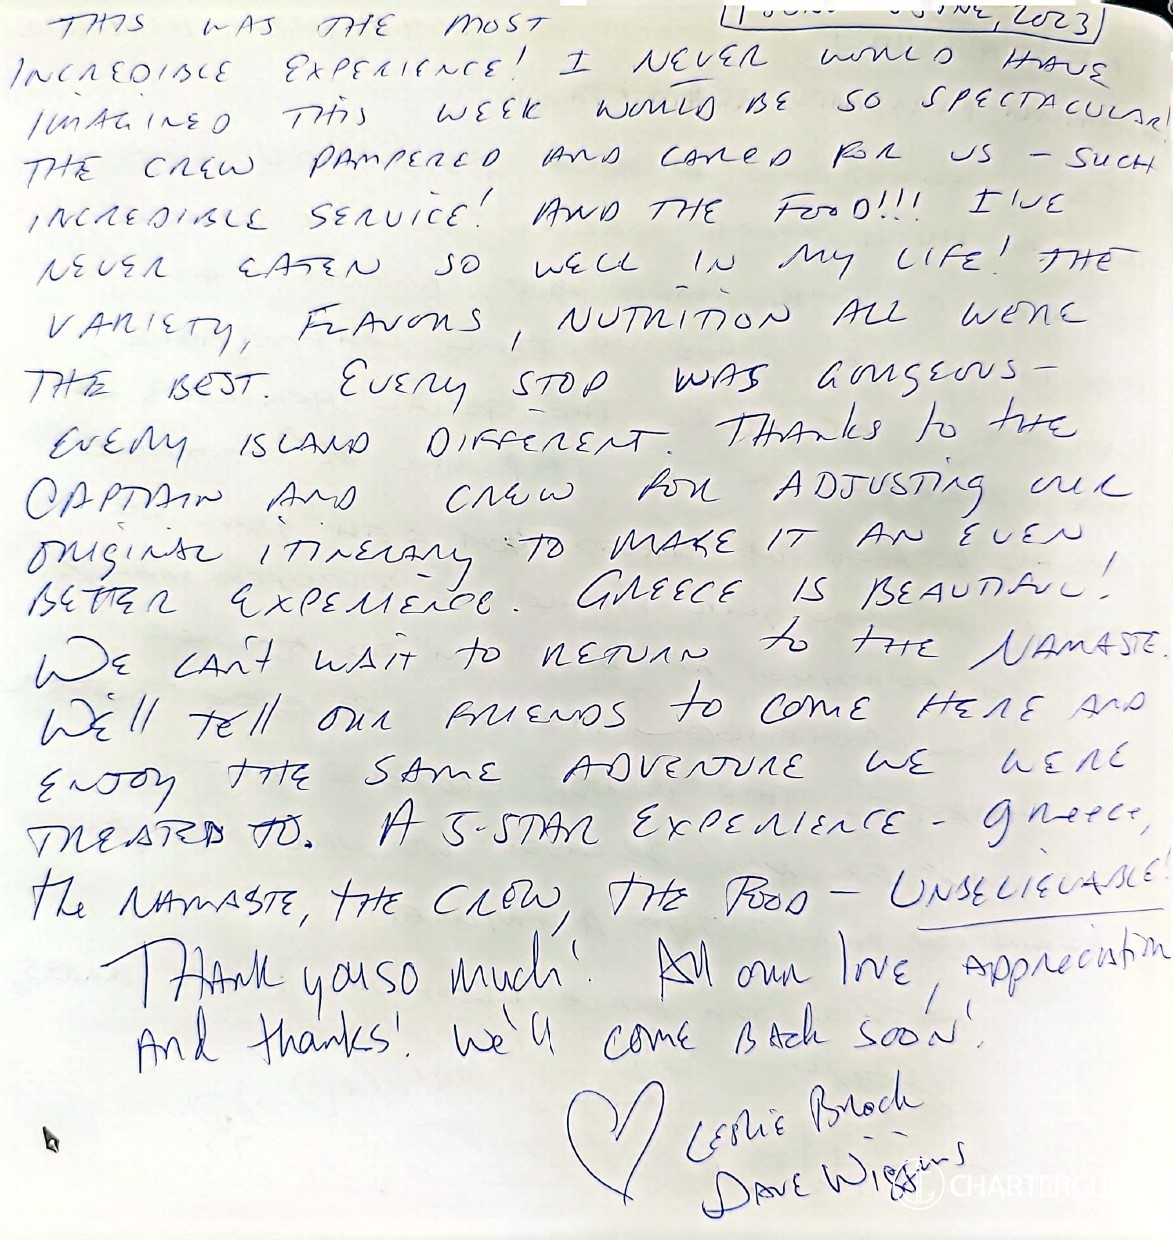 JUNE, 2023
THIS WAS THE MOST
INCREDIBLE EXPERIENCE! I NEVER WOULD HAVE
IMAGINED THIS WEEK WOULD BE SO SPECTACULAR!
THE CREW PAMPERED AND CARED FOR US - SUCH
INCREDIBLE SERVICE! AND THE FOOD!!! I'VE
NEVER EATEN SO WELL IN MY LIFE! THE
VARIETY, FLAVORS, NUTRITION ALL WERE
THE BEST. EVERY STOP WAS GORGEOUS -
EVERY ISLAND DIFFERENT. THANKS to THE
CAPTAIN AND CREW FOR ADJUSTING OUR
ORIGINAL ITINERARY TO MAKE IT AN EVEN
BETTER EXPERIENCE. GREECE IS BEAUTIFUL!
WE CAN'T WAIT TO RETURN to THE NAMASTE.
WE'll tell OUR FRIENDS to COME HERE AND
ENJOY THE SAME ADVENTURE WE WERE
TREATED TO. A 5-STAR EXPERIENCE - Greece,
the NAMASTE, THE CREW, THE FOOD - UNBELIEVABLE!
THANK you so much! All our love, Appreciation
And thanks! We'll COME BACK SOON!
LESLIE Brock
DAVE Wiggins